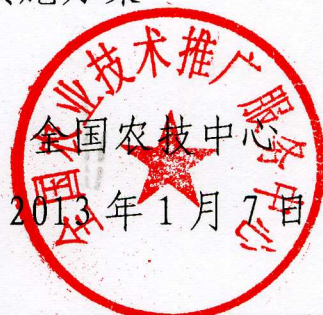 全国农业技术推广服务中心
全国农技中心
2013年1月7日